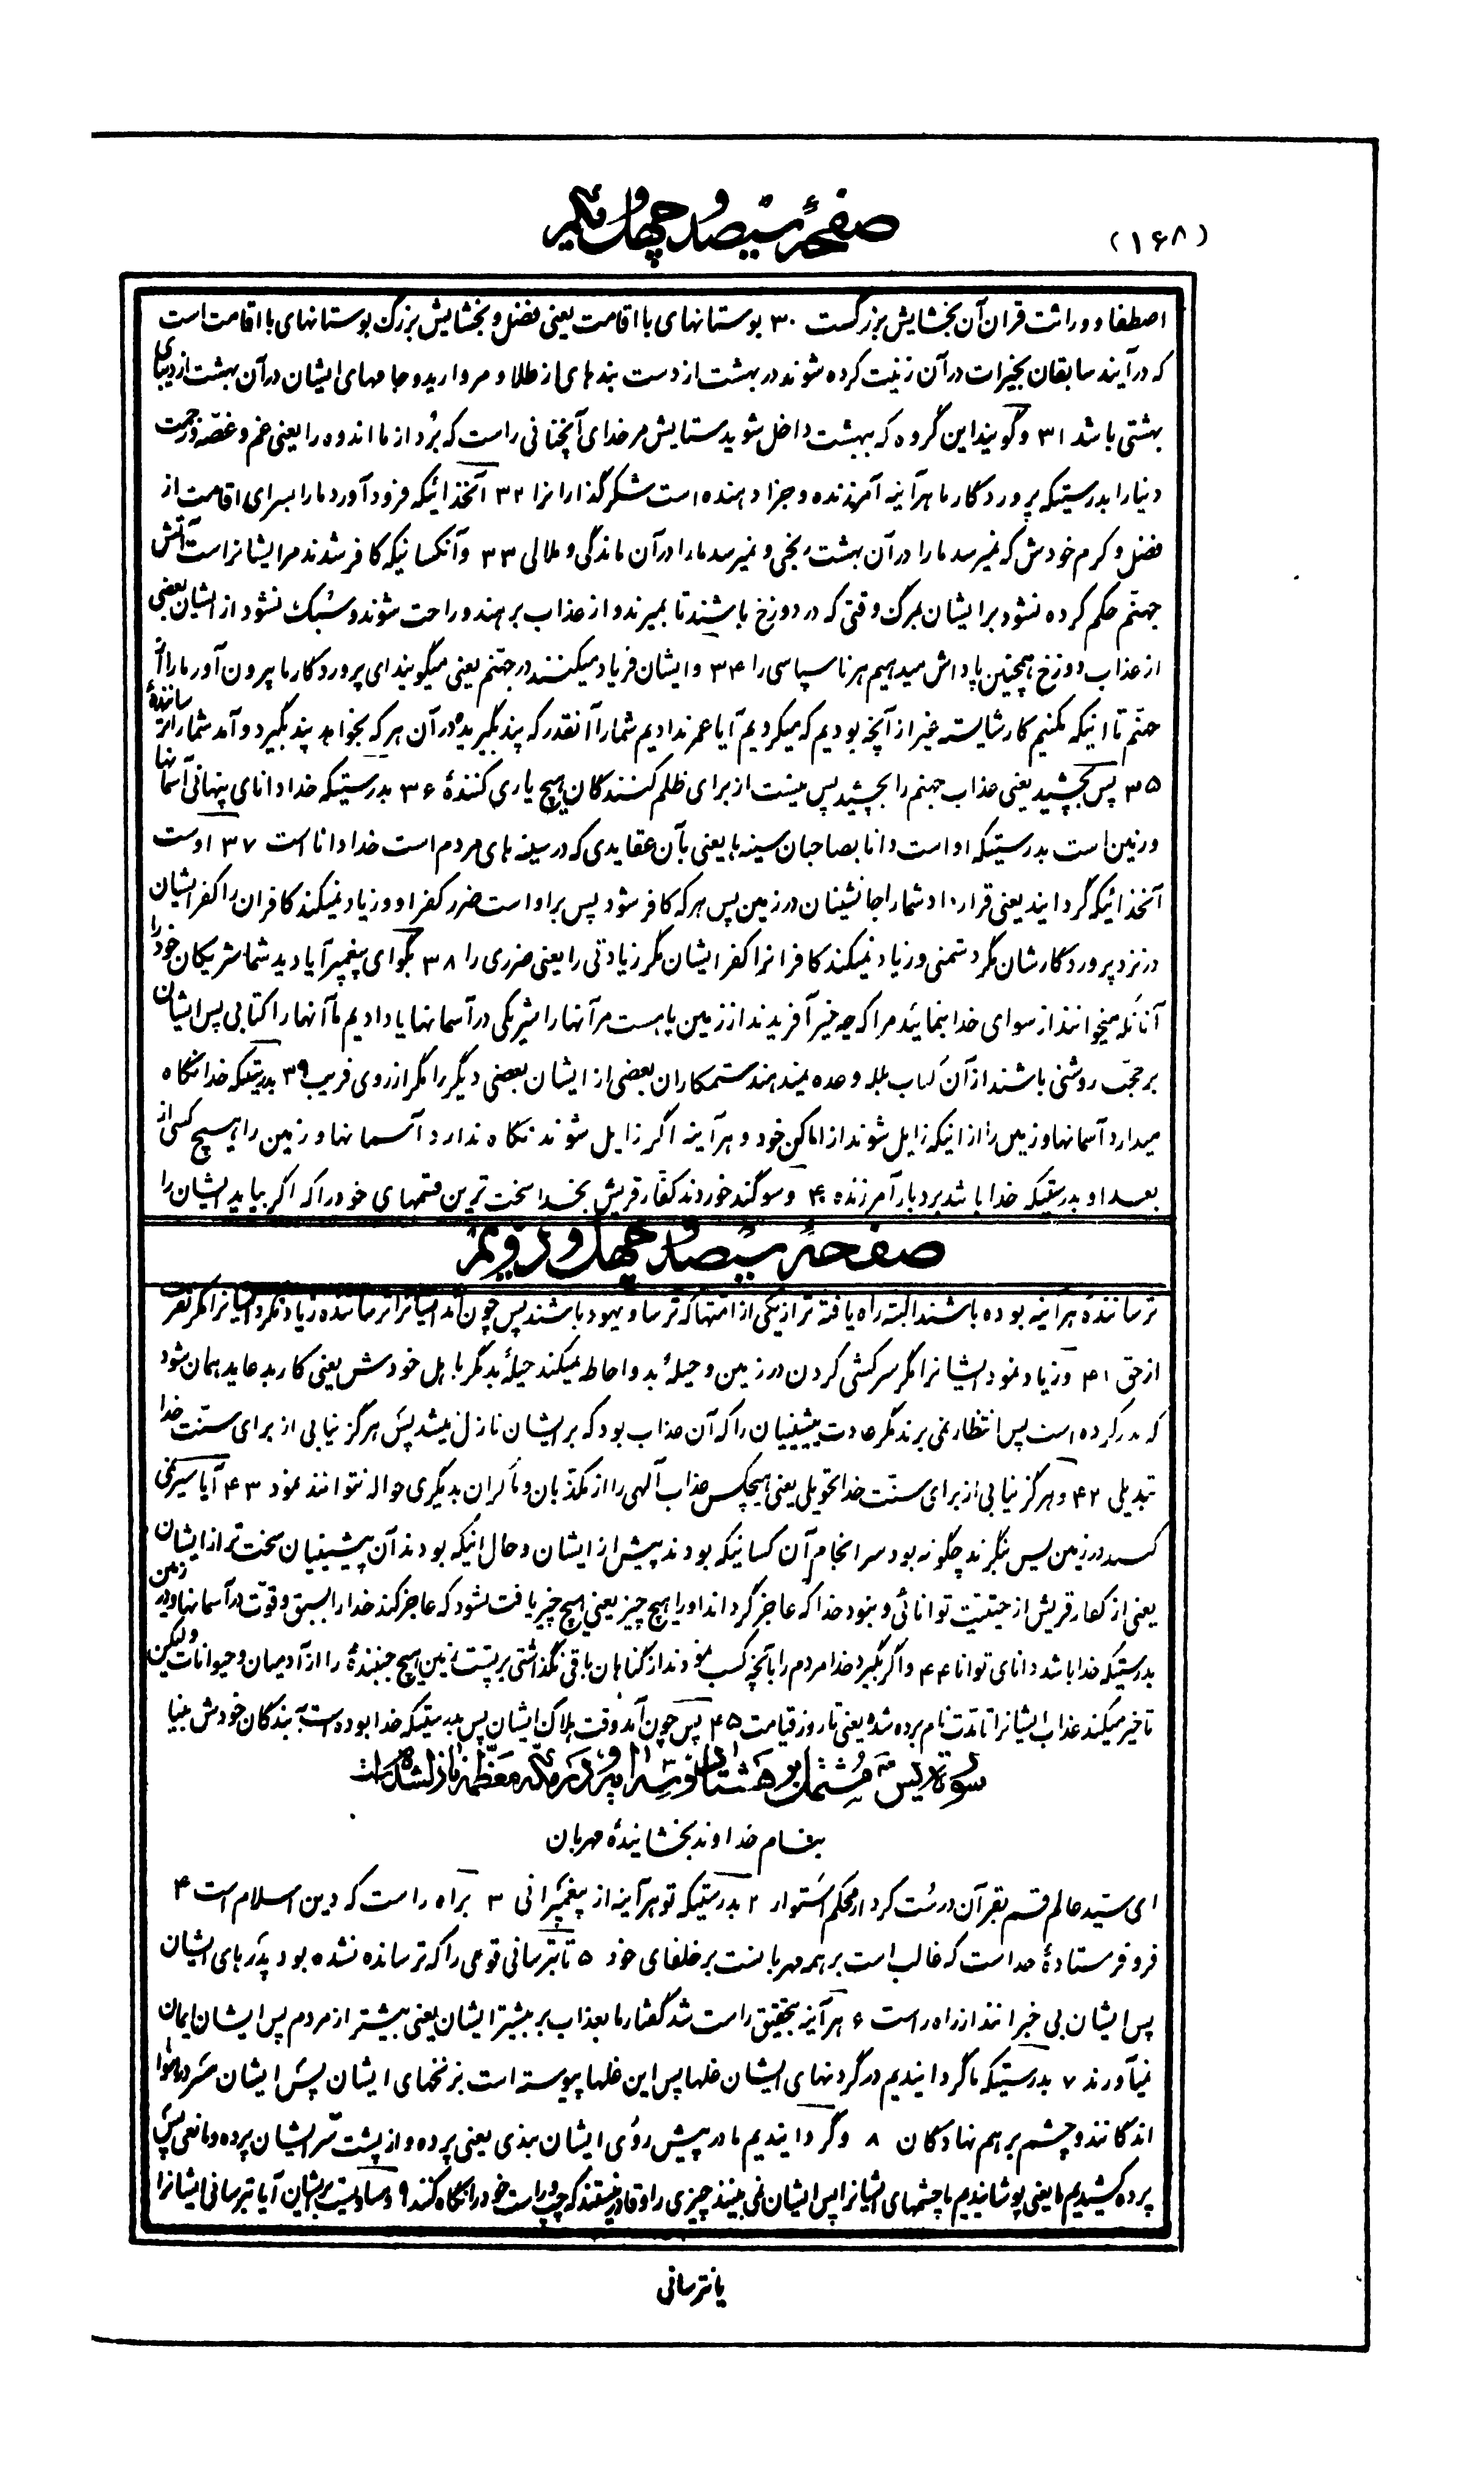 (۱۶۸)
صفحهٔ سیصد و چهل و یکم
اصطفا و وراثت قران آن بخشایش بزرگست ۳۰ بوستانهای با اقامت یعنی فضل و بخشایش بزرک بوستانهای با اقامت است
که درآیند سابقان بخیرات در آن زینت کرده شوند در بهشت از دست بندهای از طلا و مروارید و جامهای ایشان در آن بهشت از دیبای
بهشتی باشد ۳۱ و گویند این گروه که ببهشت داخل شوید ستایش مر خدای آنچنانی راست که بُرد از ما اندوه را یعنی غم و غصّه و زحمت
دنیا را بدرستیکه پروردکار ما هرآینه آمرزنده و جزا دهنده است شکر گذارانرا ۳۲ آنخدائیکه فرود آورد ما را بسرای اقامت از
فضل و کرم خودش که نمیرسد ما را در آن بهشت رنجی و نمیرسد ما را در آن ماندگی و ملالی ۳۳ و آنکسانیکه کافر شدند مر ایشانراست آتش
جهنّم حکم کرده نشود بر ایشان بمرک وقتی که در دوزخ باشند تا بمیرند و از عذاب برهند و راحت شوند و سُبک نشود از ایشان بعضی
از عذاب دوزخ همچنین پاداش میدهیم هر ناسپاسی را ۳۴ و ایشان فریاد میکنند در جهنّم یعنی میگویند ای پروردکار ما بیرون آور ما را از
جهنّم تا اینکه بکنیم کار شایسته غیر از آنچه بودیم که میکردیم آیا عمر ندادیم شما را آنقدر که پند بگیرید در آن هر که بخواهد پند بگیرد و آمد شما را ترسانندهٔ
۳۵ پس بچشید یعنی عذاب جهنم را بچشید پس نیست از برای ظلم کنندکان هیچ یاری کنندهٔ ۳۶ بدرستیکه خدا دانای پنهانی آسمانها
و زمین است بدرستیکه او است دانا بصاحبان سینه ها یعنی بآن عقایدی که در سینه های مردم است خدا دانا است ۳۷ اوست
آنخدائیکه گردانید یعنی قرار داد شما را جانشینان در زمین پس هر که کافر شود پس بر او است ضرر کفر او و زیاد نمیکند کافران را کفر ایشان
در نزد پروردکارشان مگر دشمنی و زیاد نمیکند کافرانرا کفر ایشان مگر زیادتی را یعنی ضرری را ۳۸ بگو ای پیغمبر آیا دیدید شما شریکان خود را
آنانکه میخوانند از سوای خدا بنمائید مرا که چه خیر آفریدند از زمین یا هست مر آنها را شریکی در آسمانها یا دادیم ما آنها را کتابی پس ایشان
بر حجّت روشنی باشند از آن کتاب بلکه وعده نمیدهند ستمکاران بعضی از ایشان بعضی دیگر را مگر از روی فریب ۳۹ بدرستیکه خدا نگاه
میدارد آسمانها و زمین را از اینکه زایل شوند از اماکن خود و هرآینه اگر زایل شوند نگاه ندارد آسمانها و زمین را هیچ کسی از
بعد او بدرستیکه خدا باشد بردبار آمرزنده ۴۰ و سوگند خوردند کفّار قریش بخدا سخت ترین قسمهای خود را که اکر بیاید ایشان را
صفحهٔ سیصد و چهل و دویم
ترسانندهٔ هرآینه بوده باشند البته راه یافته تر از یکی از امتها که ترسا و یهود باشند پس چون آمد ایشانرا ترساننده زیاد نکرد ایشانرا مگر نفرت
از حق ۴۱ و زیاد نمود ایشانرا مگر سرکشی کردن در زمین و حیلهٔ بد و احاطه نمیکند حیلهٔ بد مگر باهل خودش یعنی کار بد عاید همان شود
که بد کرده است پس انتظار نمی برند مگر عادت پیشینیان را که آن عذاب بود که بر ایشان نازل میشد پس هرگز نیابی از برای سنّت خدا
تبدیلی ۴۲ و هرگز نیابی از برای سنّت خدا تحویلی یعنی هیچکس عذاب آلهی را از مکذّبان و ماکران بدیگری حواله نتوانند نمود ۴۳ آیا سیر نمی
کنند در زمین پس بنگرند چگونه بود سرانجام آن کسانیکه بودند پیش از ایشان و حال اینکه بودند آن پیشینیان سخت تر از ایشان
یعنی از کفار قریش از حیثیت توانائی و نبود خدا که عاجز گرداند او را هیچ چیز یعنی هیچ چیز یافت نشود که عاجز کند خدا را بسبق و قوّت در آسمانها و در زمین
بدرستیکه خدا باشد دانای توانا ۴۴ و اگر بگیرد خدا مردم را بآنچه کسب نمودند از گناهان باقی نگذاشتی بر پشت زمین هیچ جنبندهٔ را از آدمیان و حیوانات ولیکن
تاخیر میکند عذاب ایشانرا تا مدّت نام برده شده یعنی تا روز قیامت ۴۵ پس چون آمد وقت هلاک ایشان پس بدرستیکه خدا بوده است به بندکان خودش بینا
سورهٔ یس مشتمل بر هشتاد و سه آیه و در مکهٔ معظّمه نازل شده است
بنام خداوند بخشایندهٔ مهربان
ای سیّد عالم قسم بقرآن درست کردار محکم استوار ۲ بدرستیکه تو هرآینه از پیغمبرانی ۳ براه راست که دین اسلام است ۴
فرو فرستادهٔ خداست که غالب است بر همه مهربانست بر خلقهای خود ۵ تا بترسانی قومی را که ترسانده نشده بود پدرهای ایشان
پس ایشان بی خبرانند از راه راست ۶ هرآینه بتحقیق راست شد گفتار ما بعذاب بر بیشتر ایشان یعنی بیشتر از مردم پس ایشان ایمان
نمیآورند ۷ بدرستیکه ما گردانیدیم در گردنهای ایشان غلها پس این غلها پیوسته است بزنخهای ایشان پس ایشان سر در هوا
اندکانند و چشم بر هم نهادکان ۸ و گردانیدیم ما در پیش روی ایشان سدی یعنی پرده و از پشت سر ایشان پرده و مانعی پس
پرده کشیدیم ما یعنی پوشاندیم ما چشمهای ایشانرا پس ایشان نمی بینند چیزی را و قادر نیستند که چپ و راست خود را نگاه کنند ۹ و مساویست بر ایشان آیا بترسانی ایشانرا
یا نترسانی